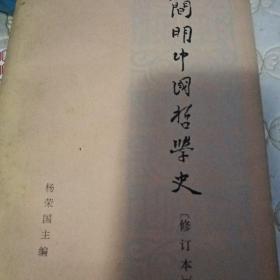 簡明中國哲學史
［修订本］
杨荣国主编